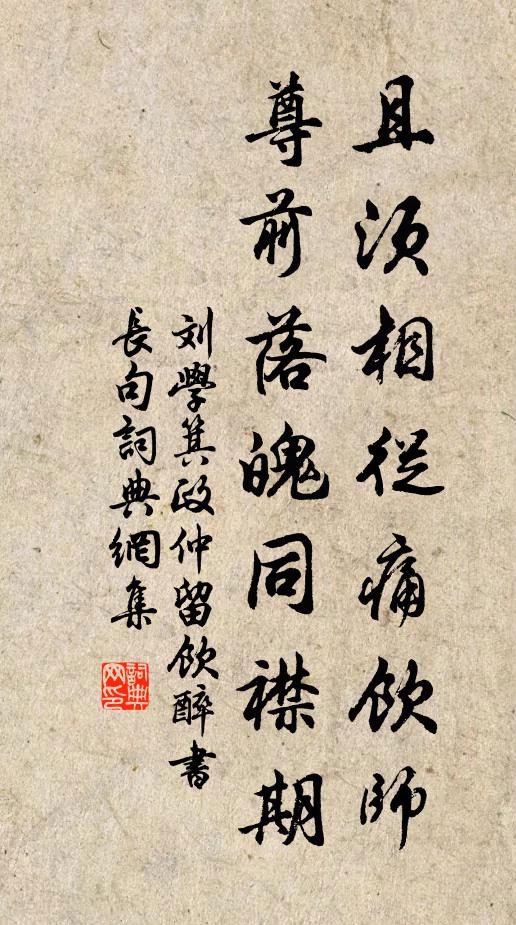 且須相從痛飲師
尊前落魄同襟期
刘學箕政仲留飲醉書
長句詞典網集
詞典
网印